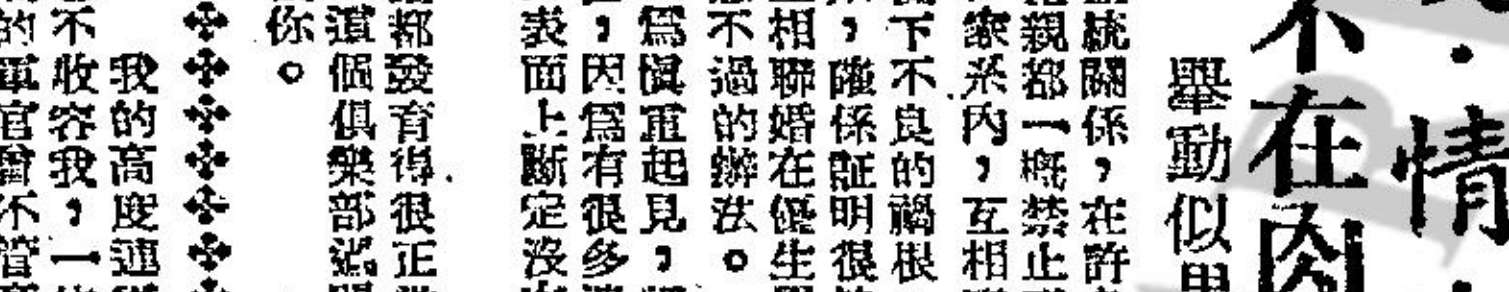 情
不在肉
舉動似
統關係，在許
親都一概禁止
家系內，互相
下不良的禍根
，確係証明很
相聯婚在優生
不過的辦法。
爲愼重起見，
，因爲有很多
表面上斷定沒
都發育得很正
這個俱樂部
你。
我的高度連
不收容我，一
的軍官曾不管